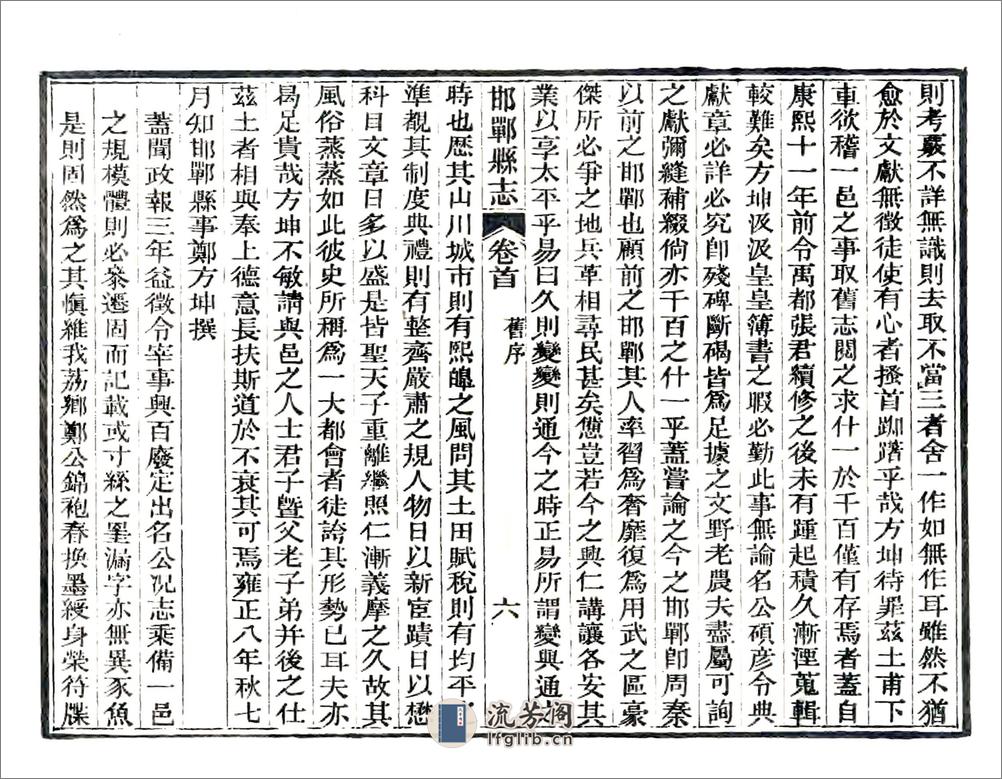 則考覈不詳無識則去取不當三者舍一作如無作耳雖然不猶
愈於文獻無徵徒使有心者搔首踟躇乎哉方坤待罪茲土甫下
車欲稽一邑之事取舊志閱之求什一於千百僅有存焉者蓋自
康熙十一年前令禹都張君續修之後未有踵起積久漸湮蒐輯
較難矣方坤汲汲皇皇簿書之暇必勤此事無論名公碩彥令典
獻章必詳必究卽殘碑斷碣皆爲足據之文野老農夫盡屬可詢
之獻彌縫補綴倘亦千百之什一乎蓋嘗論之今之邯鄲卽周秦
以前之邯鄲也顧前之邯鄲其人率習爲奢靡復爲用武之區豪
傑所必爭之地兵革相尋民甚矣憊豈若今之興仁講讓各安其
業以享太平乎易曰久則變變則通今之時正易所謂變與通之
邯鄲縣志
卷首
舊序
六
時也歷其山川城市則有熙皞之風問其土田賦稅則有均平之
準覩其制度典禮則有整齊嚴肅之規人物日以新宦蹟日以懋
科目文章日多以盛是皆聖天子重離繼照仁漸義摩之久故其
風俗蒸蒸如此彼史所稱爲一大都會者徒誇其形勢已耳夫亦
曷足貴哉方坤不敏請與邑之人士君子曁父老子弟并後之仕
茲土者相與奉上德意長扶斯道於不衰其可焉雍正八年秋七
月知邯鄲縣事鄭方坤撰
蓋聞政報三年益徵令宰事興百廢定出名公況志乘備一邑
之規模體則必叅遷固而記載或寸絲之罣漏字亦無異豕魚
是則固然爲之其愼維我荔鄉鄭公錦袍春換墨綬身榮符牒
流芳阁
lfglib.cn